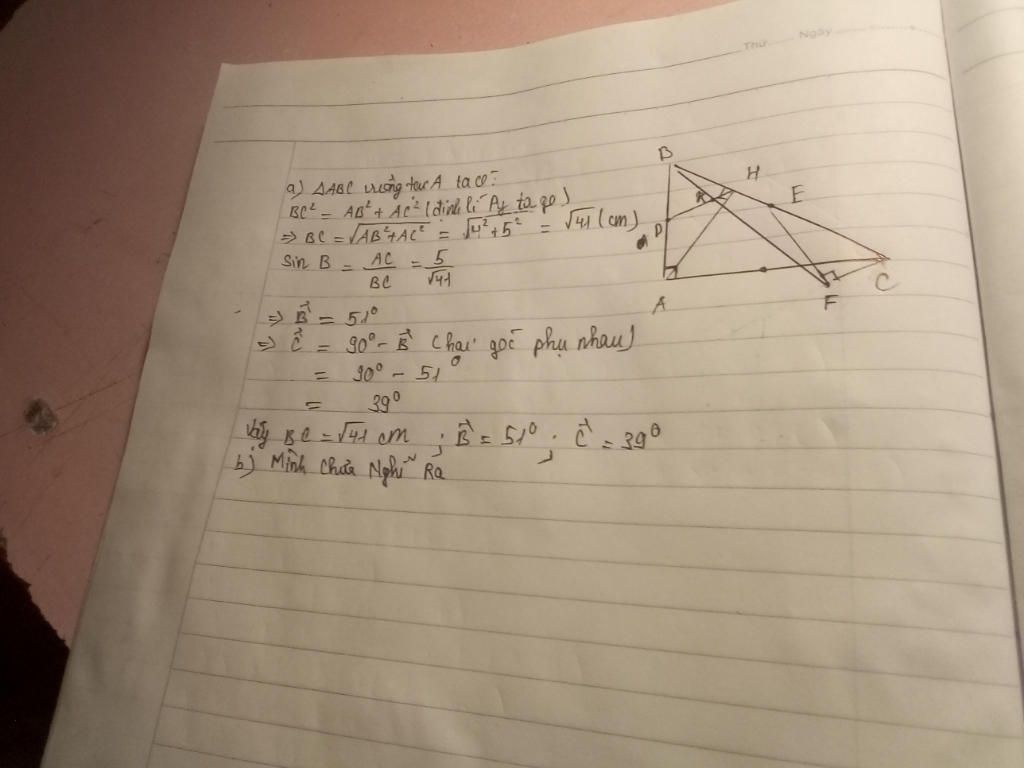 Thứ Ngày
a) ΔABC vuông tại A ta có:
BC² = AB² + AC² (định lí Py ta go)
⇒ BC = √AB²+AC² = √4²+5² = √41 (cm)
Sin B = AC/BC = 5/√41
⇒ B̂ = 51⁰
⇒ Ĉ = 90⁰ - B̂ (hai góc phụ nhau)
= 90⁰ - 51⁰
= 39⁰
Vậy BC = √41 cm ; B̂ = 51⁰ ; Ĉ = 39⁰
b) Mình chưa Nghĩ Ra
B
H
E
K
D
A
F
C